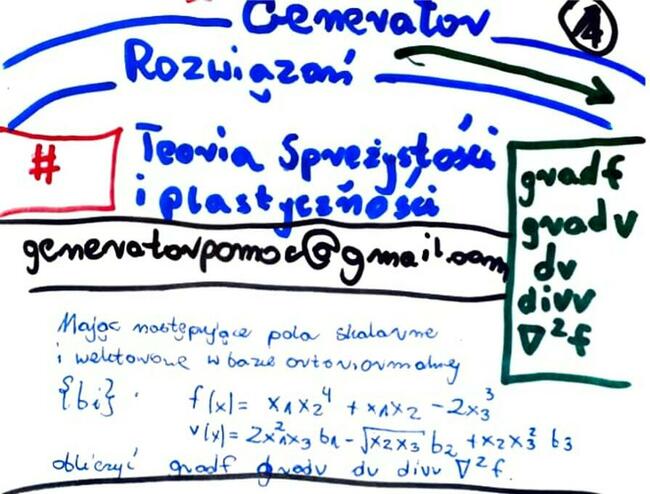 Generator
14
Rozwiązań
#
Teoria Sprężystości
i plastyczności
generatorpomoc@gmail.com
gradf
gradv
dv
divv
∇²f
Mając następujące pola skalarne
i wektorowe w bazie ortonormalnej
{bi} . f(x) = x₁x₂⁴ + x₁x₂ - 2x₃³
v(x) = 2x₁²x₃ b₁ - √x₂x₃ b₂ + x₂x₃² b₃
obliczyć gradf gradv dv divv ∇²f.